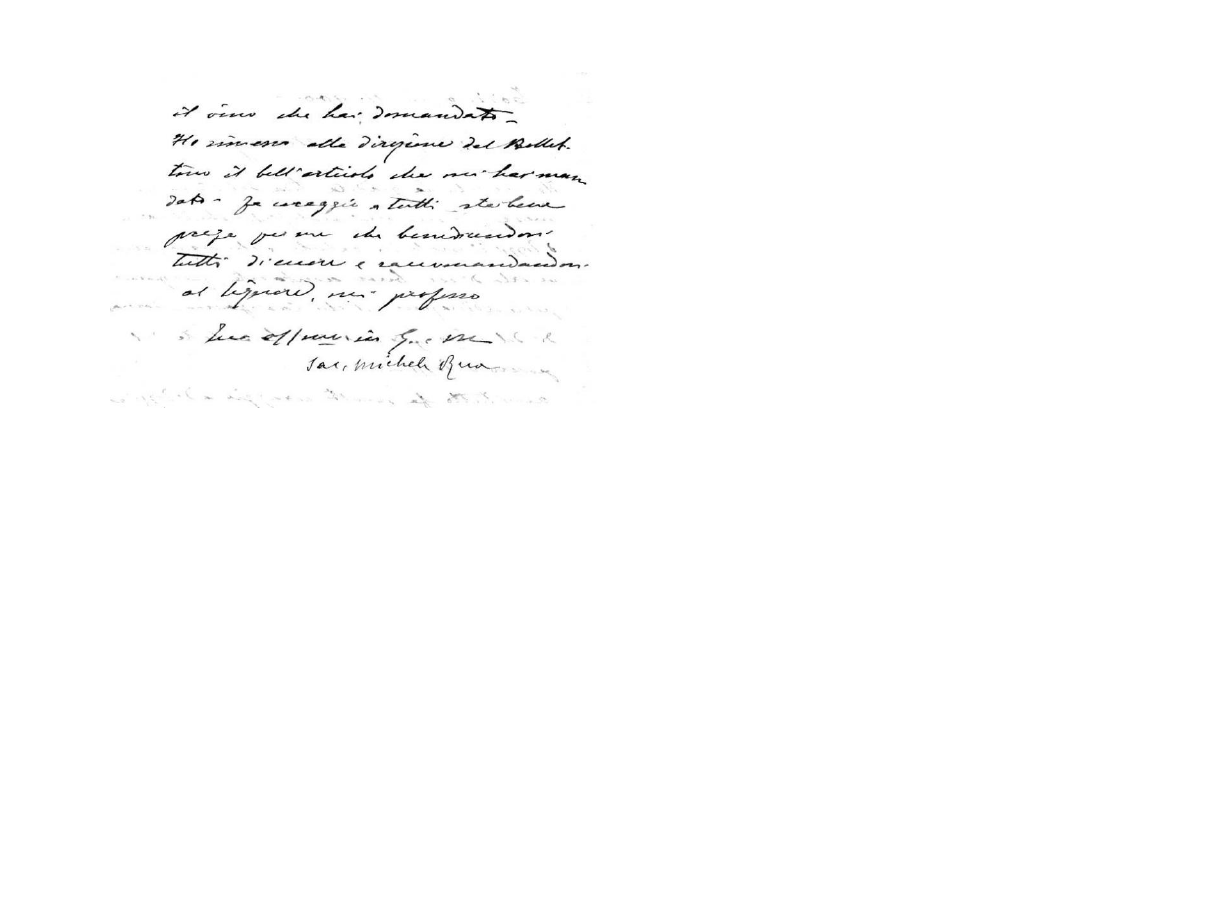 il vino che hai domandato -
Ho rimesso alla direzione del Bollet-
tino il bell'articolo che mi hai man
dato - fa coraggio a tutti sta bene
prega per me che benedicendovi
tutti di cuore e raccomandandovi
al Signore, mi professo
Tuo aff.mo in G. e M.
Sac. Michele Rua